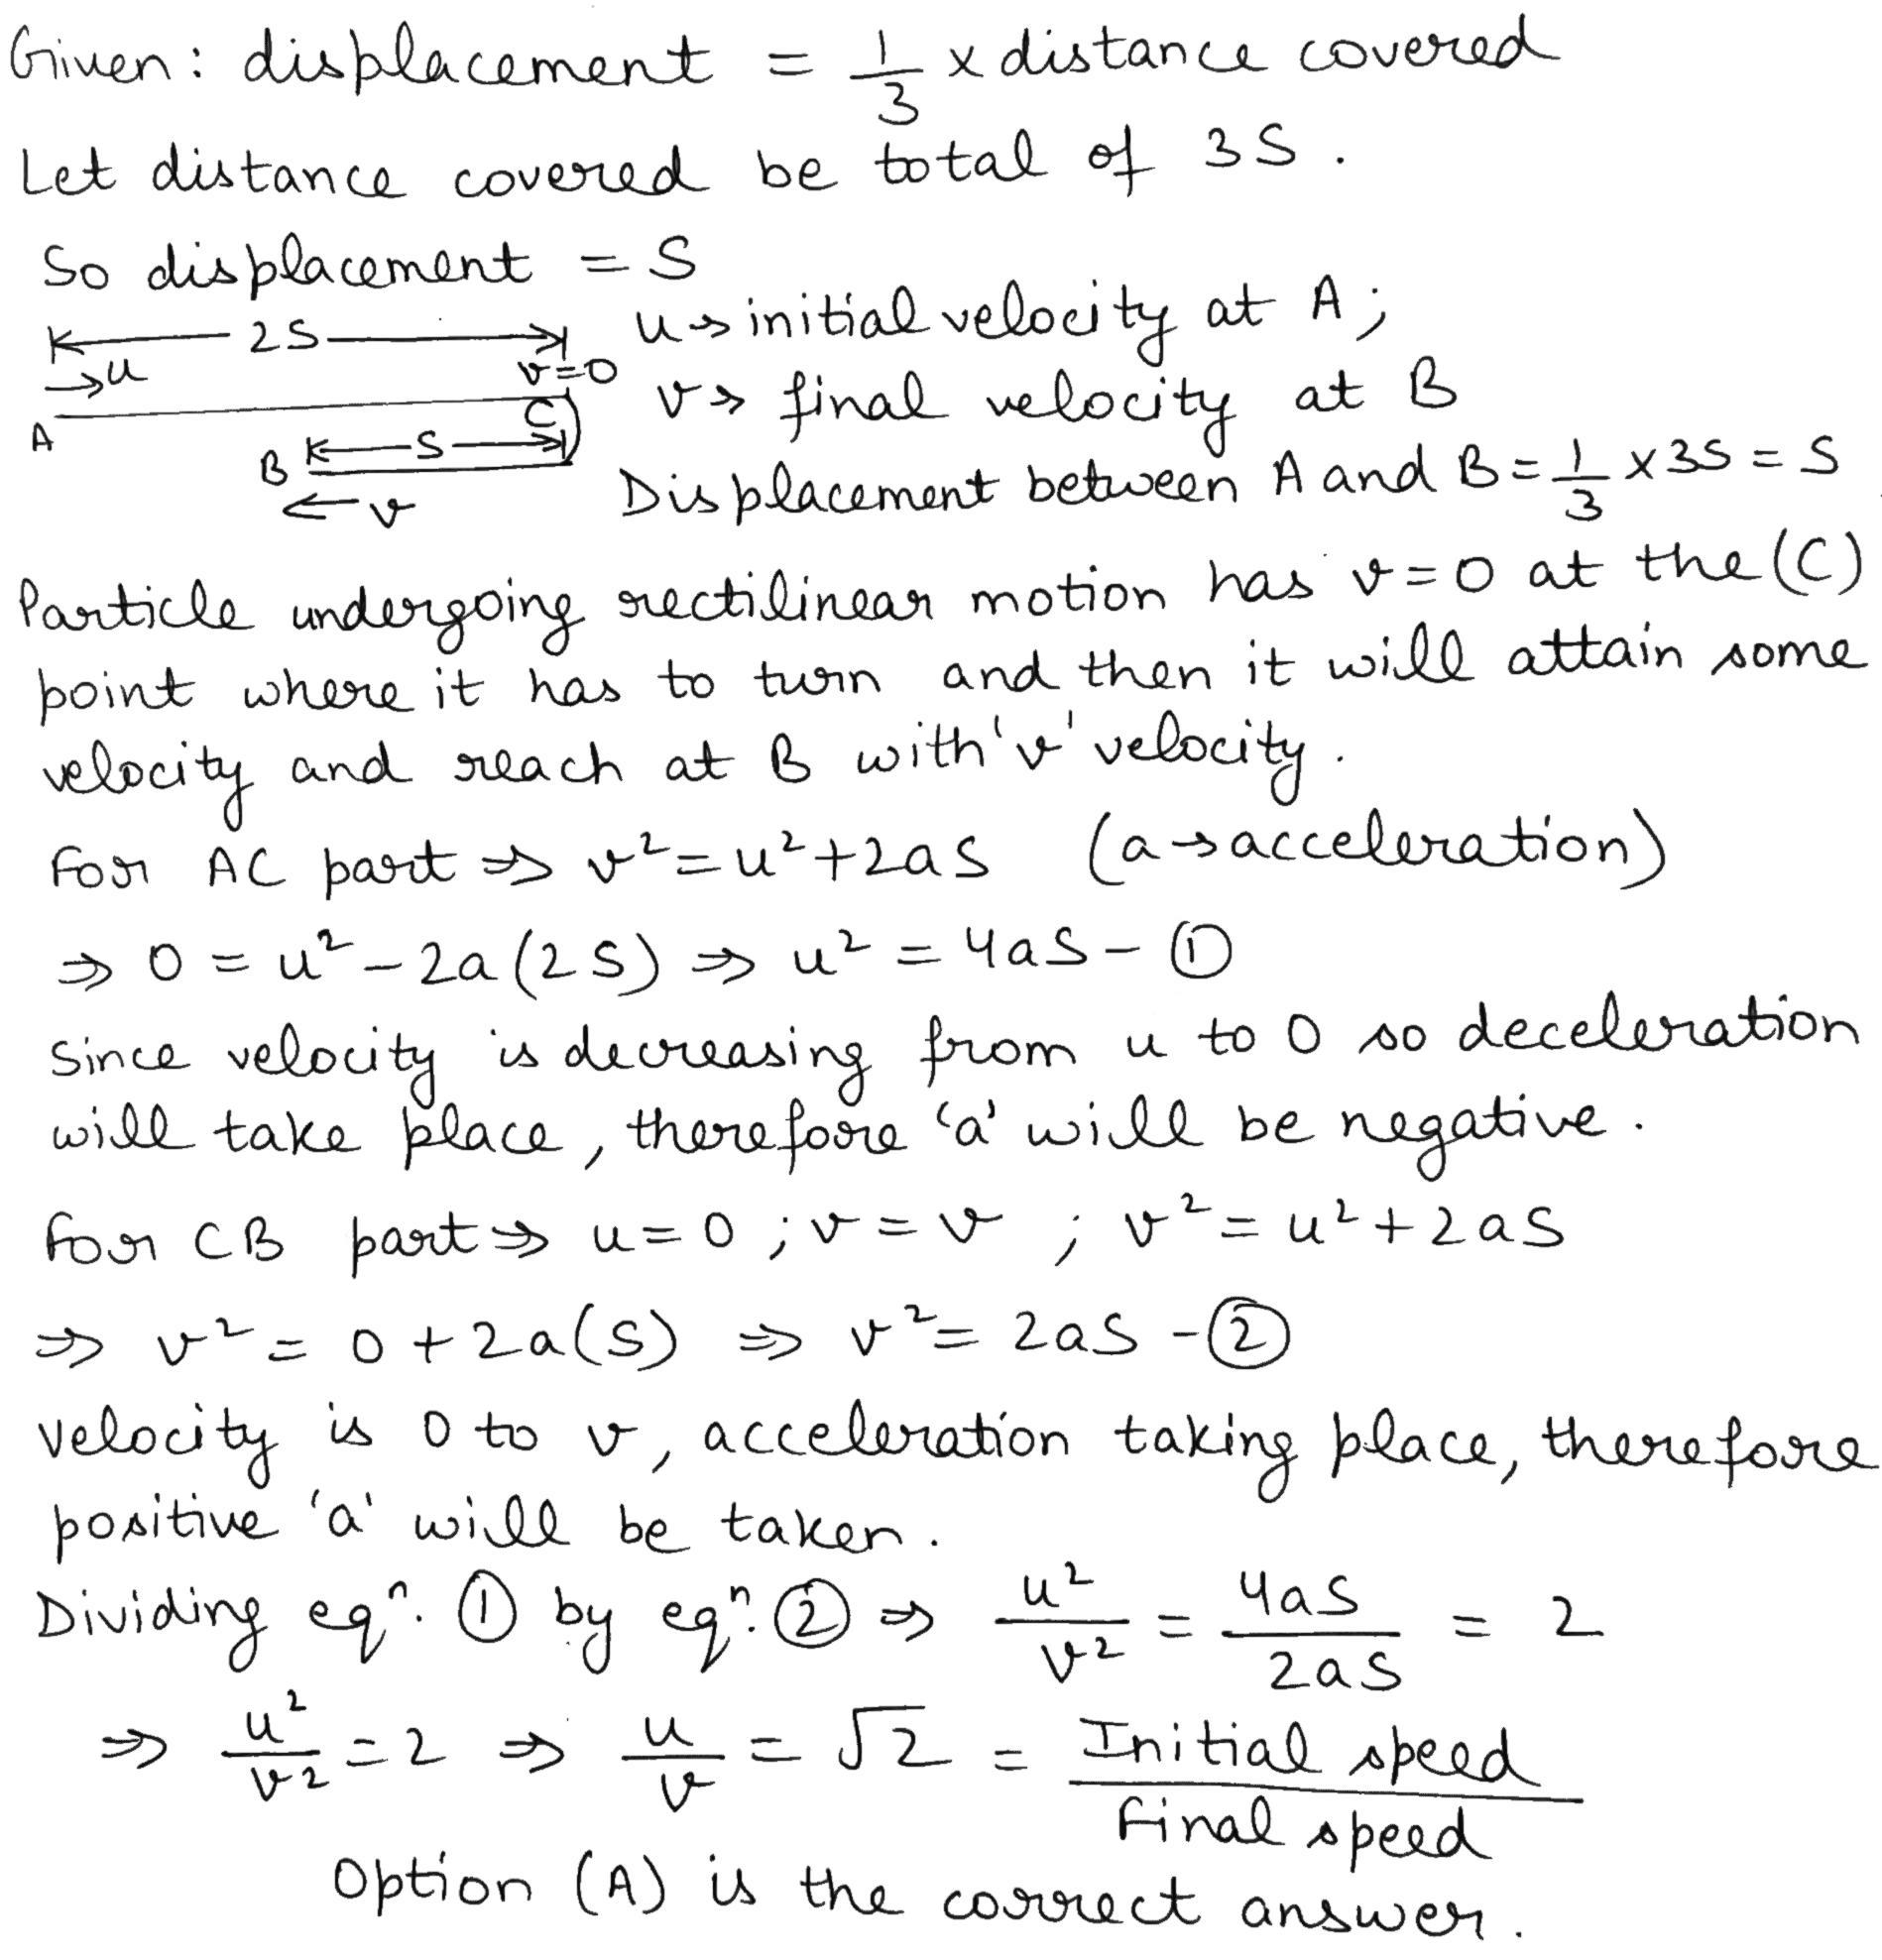 Given: displacement = 1/3 x distance covered
Let distance covered be total of 3S.
So displacement = S
2S
u → initial velocity at A;
→u
v=0
v → final velocity at B
A
C
B
S
←v
Displacement between A and B = 1/3 x 3S = S
Particle undergoing rectilinear motion has v=0 at the (C)
point where it has to turn and then it will attain some
velocity and reach at B with 'v' velocity.
For AC part ⇒ v² = u² + 2as (a → acceleration)
⇒ 0 = u² - 2a(2S) ⇒ u² = 4aS - ①
Since velocity is decreasing from u to 0 so deceleration
will take place, therefore 'a' will be negative.
For CB part ⇒ u=0 ; v=v ; v² = u² + 2aS
⇒ v² = 0 + 2a(S) ⇒ v² = 2aS - ②
Velocity is 0 to v, acceleration taking place, therefore
positive 'a' will be taken.
Dividing eqⁿ. ① by eqⁿ. ② ⇒ u²/v² = 4aS/2aS = 2
⇒ u²/v² = 2 ⇒ u/v = √2 = Initial speed/Final speed
Option (A) is the correct answer.